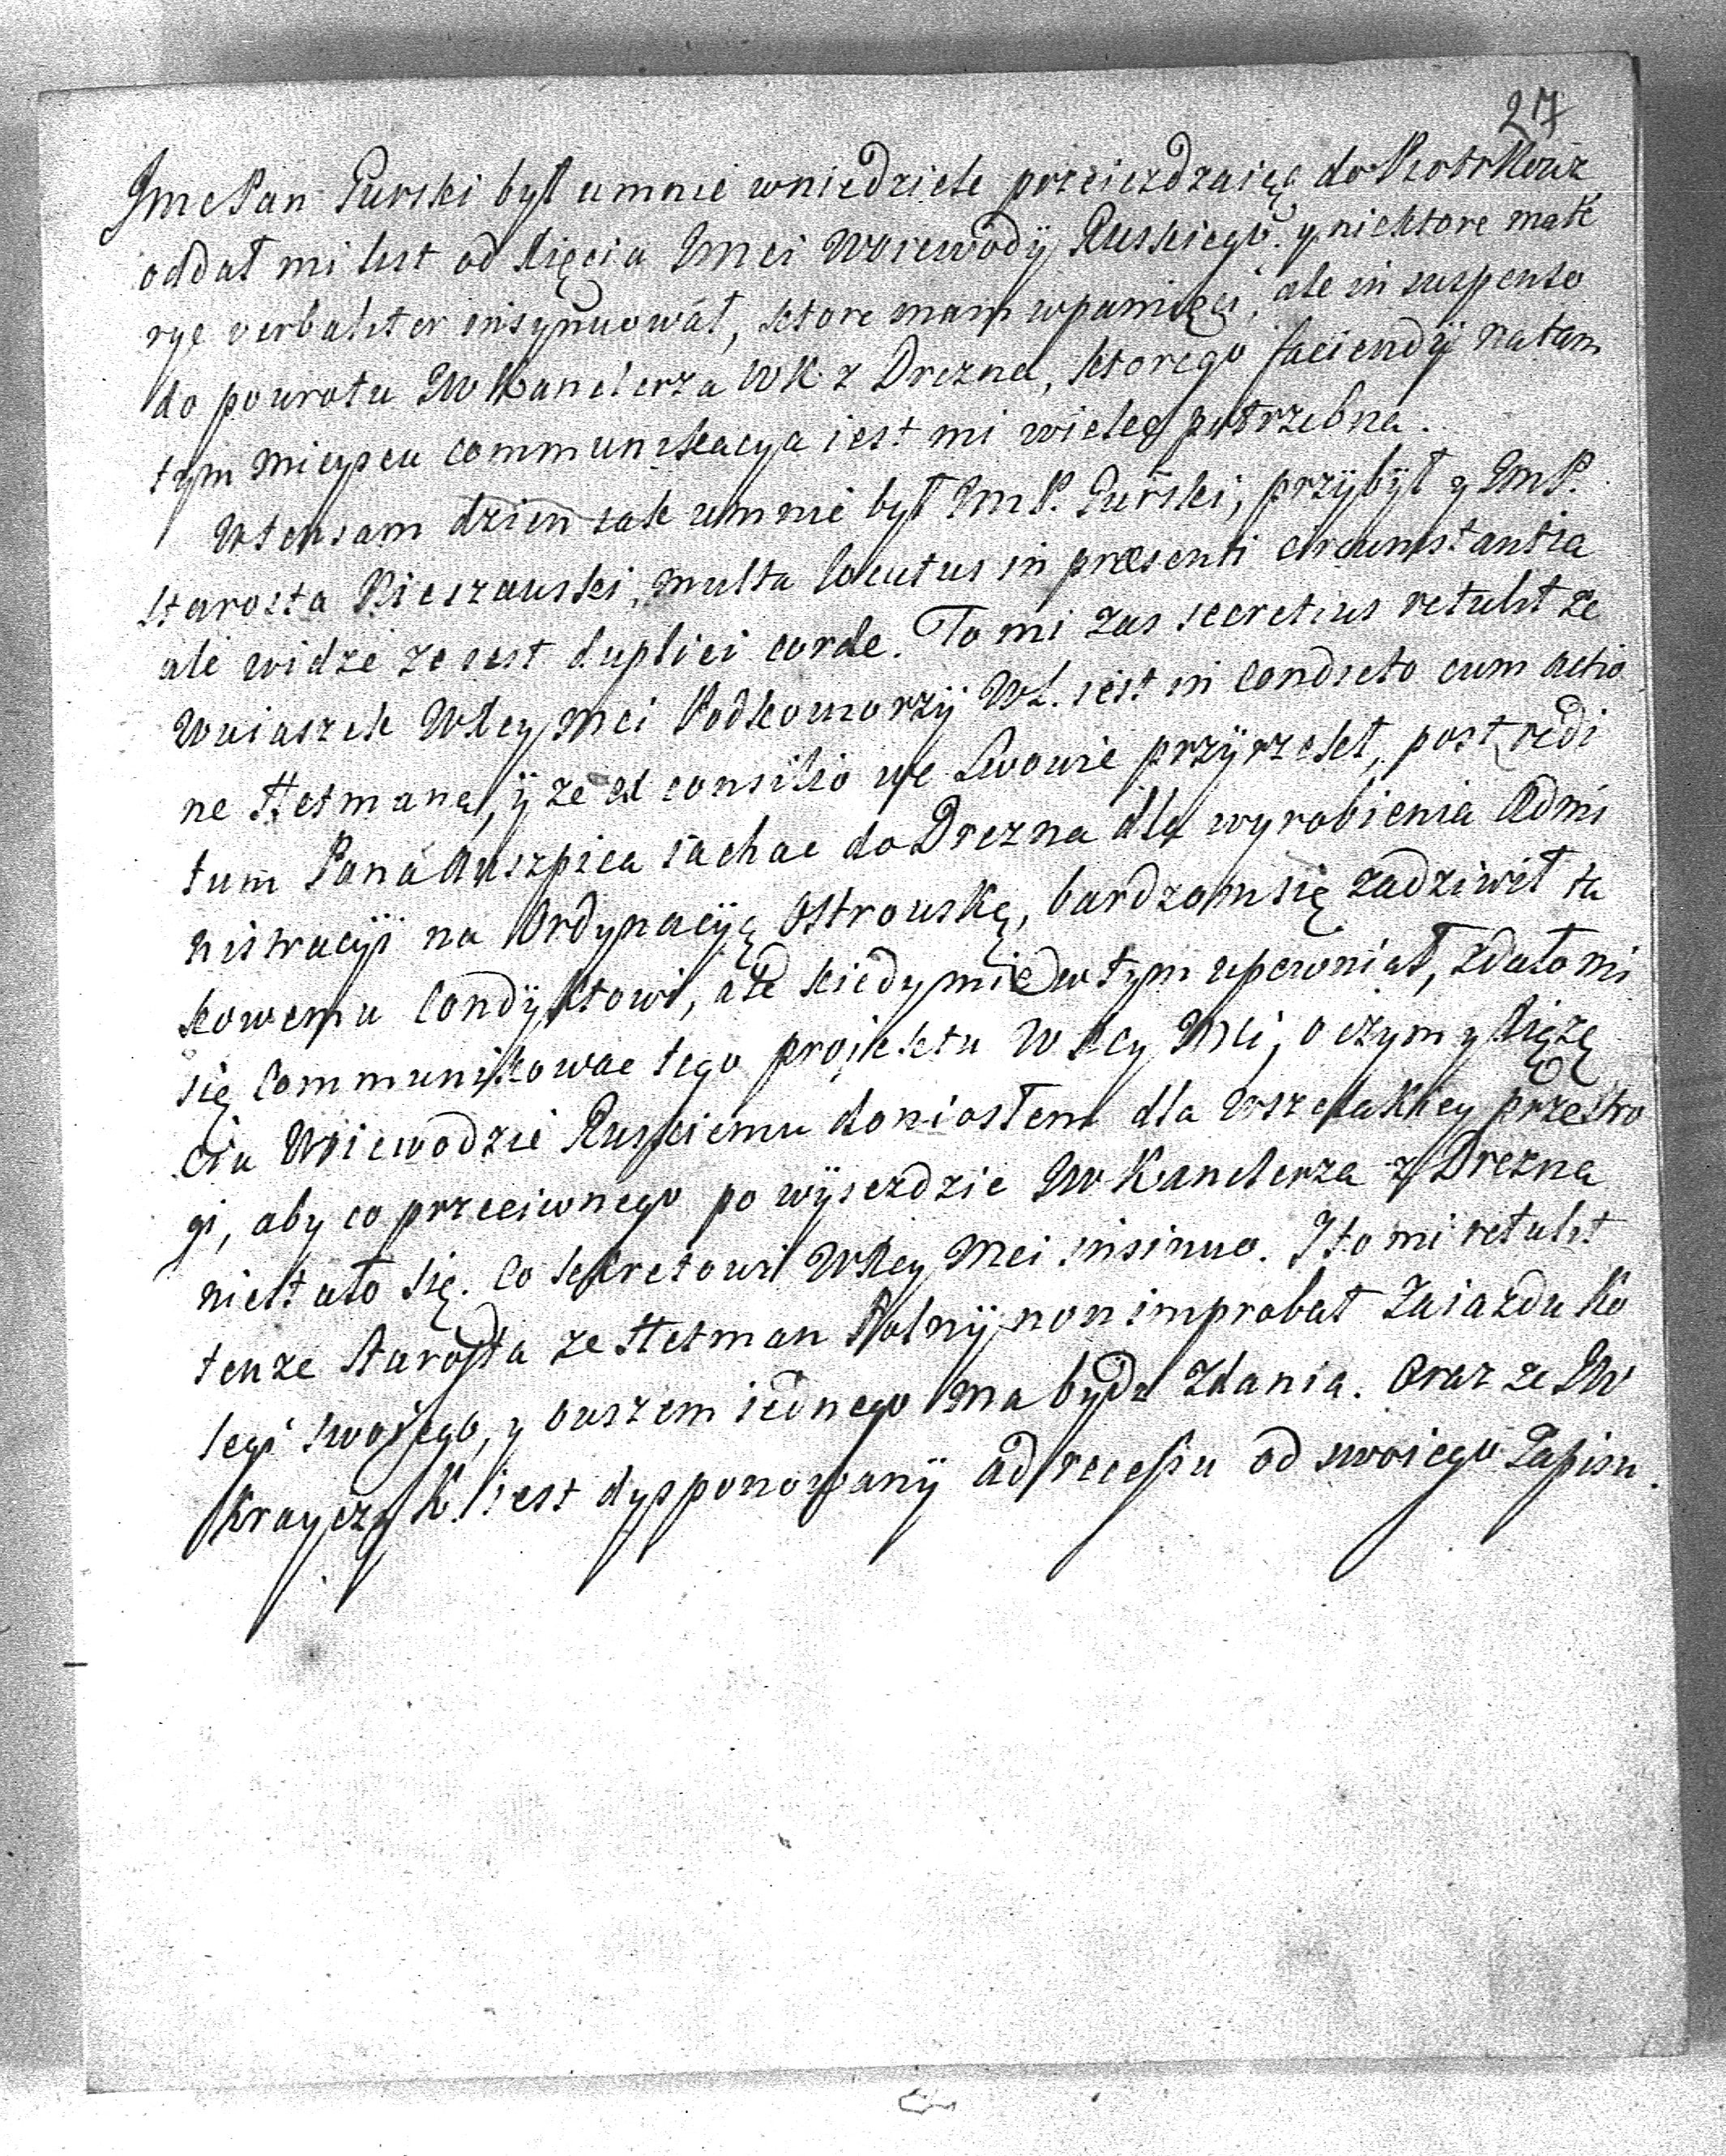 27
Jmc Pan Gurski był umnie wniedziele przeiezdzaiąc do Piotrkowa
oddał mi list od Xięcia Jmci Woiewody Ruskiego. y niektore mate
rye verbaliter insynuował, ktore mam wpamięci, ale in suspenso
do powrotu JW Kanclerza WK z Drezna, ktorego faciendÿ natam
tym mieyscu communikacya iest mi wielce potrzebna.
Wtensam dzien iak umnie był Im P. Gurski, przÿbÿł y Im P.
starosta Kiszauski, multa locutus in præsenti circumstantia
ale widze ze iest duplici corde. To mi zas secretius retulit ze
Wuiaszek WXcy Mci Podkomorzÿ WL. iest in condicto cum actio
ne Hetmana, ÿ ze ex consilio we Lwowie przÿrzekł, post redi
tum Pana Auszpica iachac do Drezna dla wyrobienia Admi
nistracyi na Ordynacyią Ostrouską, bardzom się zadziwił ta
kowemu Condÿktowi, ale kiedy mie w tym upewniał, zdało mi
się Communikowac tego projektu WXcy Mci, o czym y Xiążę
ciu Woiewodzie Ruskiemu doniosłem dla wszelakiey przestro
gi, aby co przeciwnego po wÿiezdzie JW Kanclerza z Drezna
niestało się. Co sekretowi WXcy Mci insinuo. Ito mi retulit
tenze Starosta ze Hetman Polnÿ non improbat Zaiazdu Ko
legi swoiego, y owszem iednego ma bydz zdania. Oraz ze JW
Krayczy K. iest dysponowanÿ ad recessu od swoiego Zapisu.